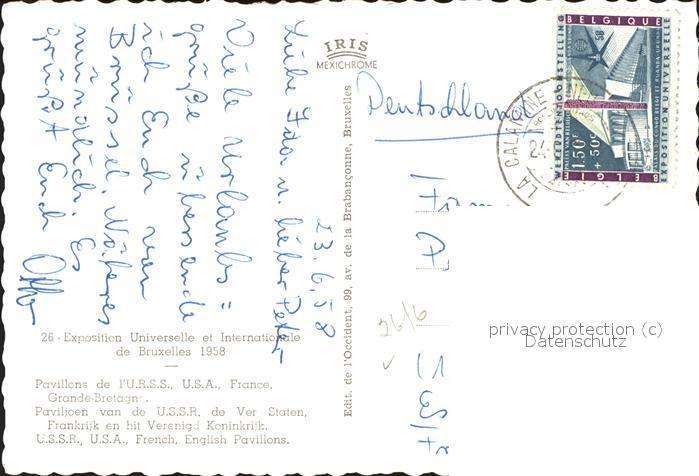 23.6.58
Liebe Ida u. lieber Peter
Viele Urlaubs=
grüße übersende
ich Euch von
Brüssel. Weiteres
mündlich. Es
grüßt Euch
26 - Exposition Universelle et Internationale
de Bruxelles 1958
Pavillons de l'U.R.S.S., U.S.A., France,
Grande-Bretagne.
Paviljoen van de U.S.S.R. de Ver Staten,
Frankrijk en hit Verenigd Koninkrijk.
U.S.S.R., U.S.A., French, English Pavillons.
IRIS
MEXICHROME
Edit. de l'Occident, 99, av. de la Brabançonne, Bruxelles
Deutschland
26/6
privacy protection (c)
Datenschutz
BELGIQUE
WERELDTENTOONSTELLING
EXPOSITION UNIVERSELLE
58
1.50F
+ 50c
BELGIE
LA CALAMINE